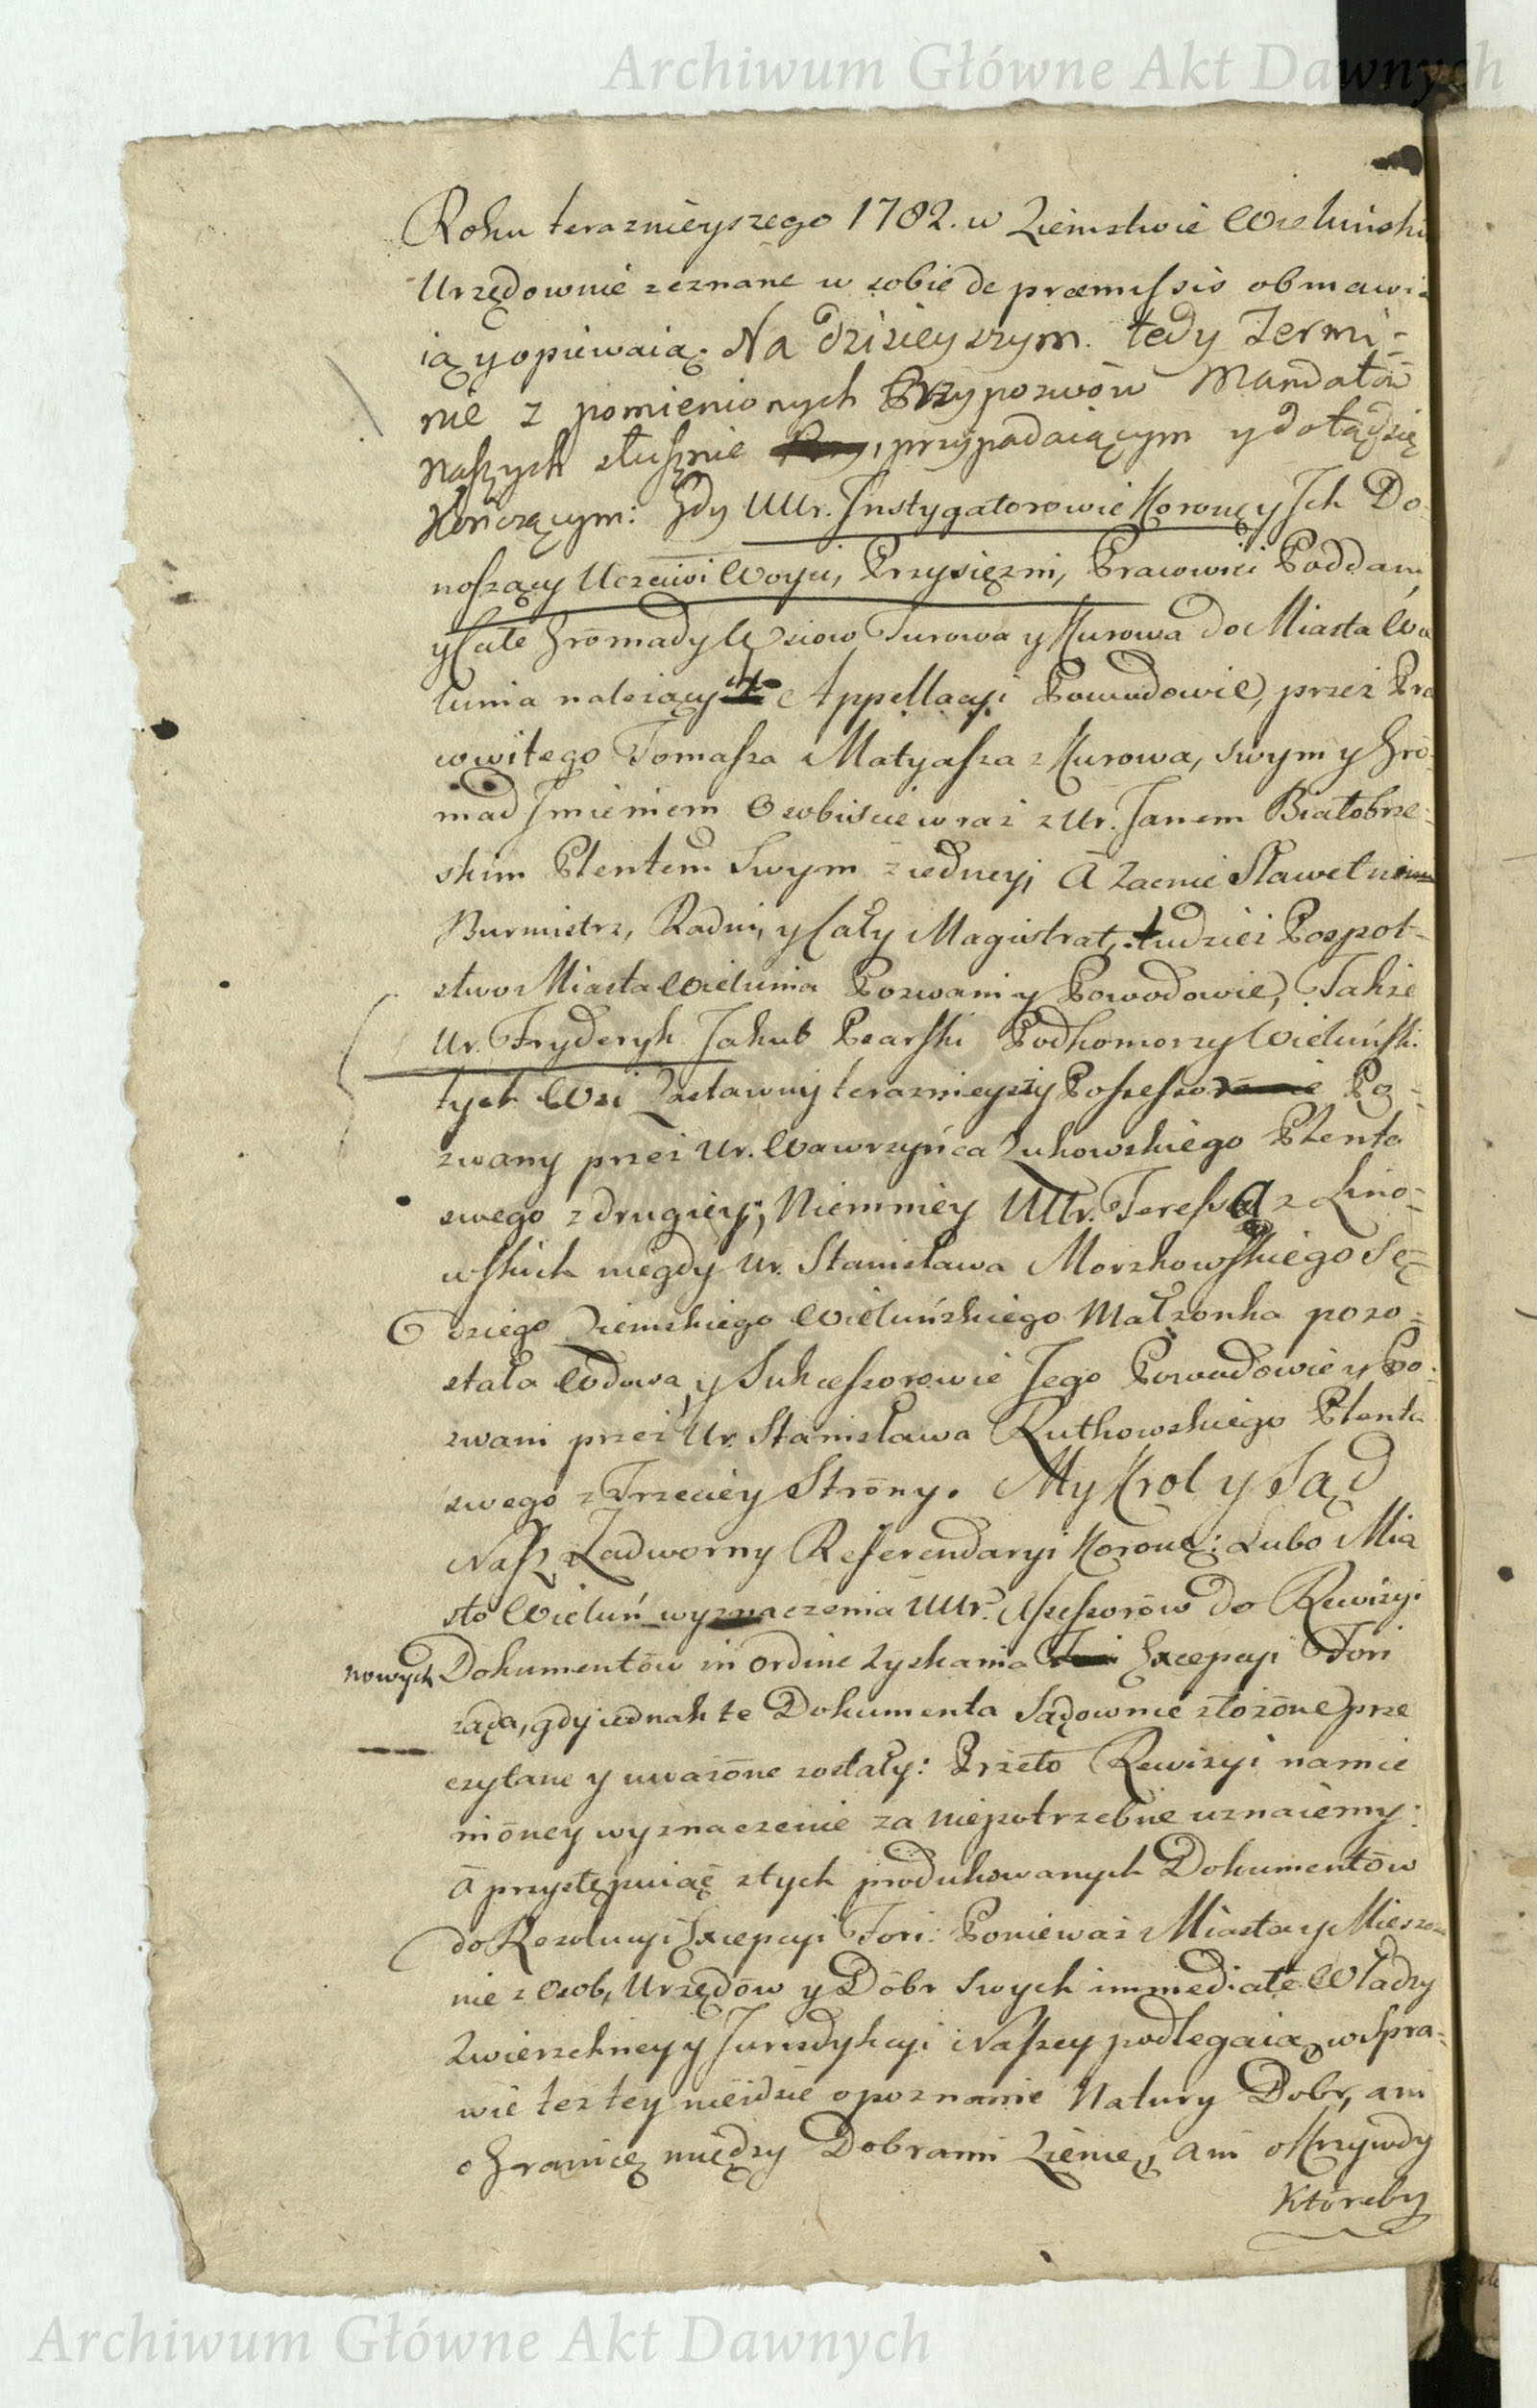 Archiwum Główne Akt Dawnych
Roku teraznieyszego 1782. w Ziemstwie Wieluńskim
Urzędownie zeznane w sobie de præmissis obmawia
ią y opiewaią. Na dzisieyszym tedy Termi-
nie z pomienionych Przypozwów Mandatów
Naszych słusznie przypadaiącym y dotąd się
Kończącym: Gdy UUr. Instygatorowie Koronę y Ich Do-
noszący Uczciwi Woyci, Przysięzni, Pracowici Poddani
y Całe Grōmady Wsiow Turowa y Kurowa do Miasta Wie
lunia nalezący Appellacyi Powodowie, przez Pra
cowitego Tomasza Matyasza z Kurowa, swym y Gro-
mad Imieniem Osobiście wraz z Ur. Janem Białobrze-
skim Plentem Swym z iedney; A Zacnie Sławetni
Burmistrz, Radni, y Cały Magistrat, tudziez Pospol-
stwo Miasta Wielunia Pozwani y Powodowie, Takze
Ur. Fryderyk Jakub Psarski Podkomorzy Wieluński
tych Wsi Zastawny teraznieyszy Possessor Po-
zwany przez Ur. Wawrzyńca Zukowskiego Plenta
swego z drugiey; Niemniey UUr. Teressa z Lino-
wskich niegdy Ur. Stanisława Morzkowskiego Sę-
dziego Ziemskiego Wieluńskiego Małzonka pozo-
stała Wdowa, y Sukcessorowie Jego Powodowie y Po-
zwani przez Ur. Stanisława Rutkowskiego Plenta
swego z Trzeciey Strōny. My Krol y Sąd
Nasz Zadworny Referendaryi Koronę: Lubo Mia
sto Wieluń wyznaczenia UUr. Assessorōw do Rewizyi
nowych Dokumentōw in ordine zyskania Excepcyi Fori
ząda, gdy iednak te Dokumenta Sądownie złozōne prze
czytane y uwazōne zostały: Przeto Rewizyi namie
niōney wyznaczenie za niepotrzebne uznaiemy:
A przystępuiąc z tych produkowanych Dokumentōw
do Rezolucyi Excepcyi Fori: Poniewaz Miasta y Miesza
nie z Osob, Urzędōw y Dōbr swych immediate Władzy
Zwierzchney y Jurisdykcyi Naszey podlegaią, w Spra-
wie tez tey nieidzie o poznanie Natury Dobr, ani
o Granicę między Dobrami Ziemę, ani o Krzywdy
Ktōreby
Archiwum Główne Akt Dawnych